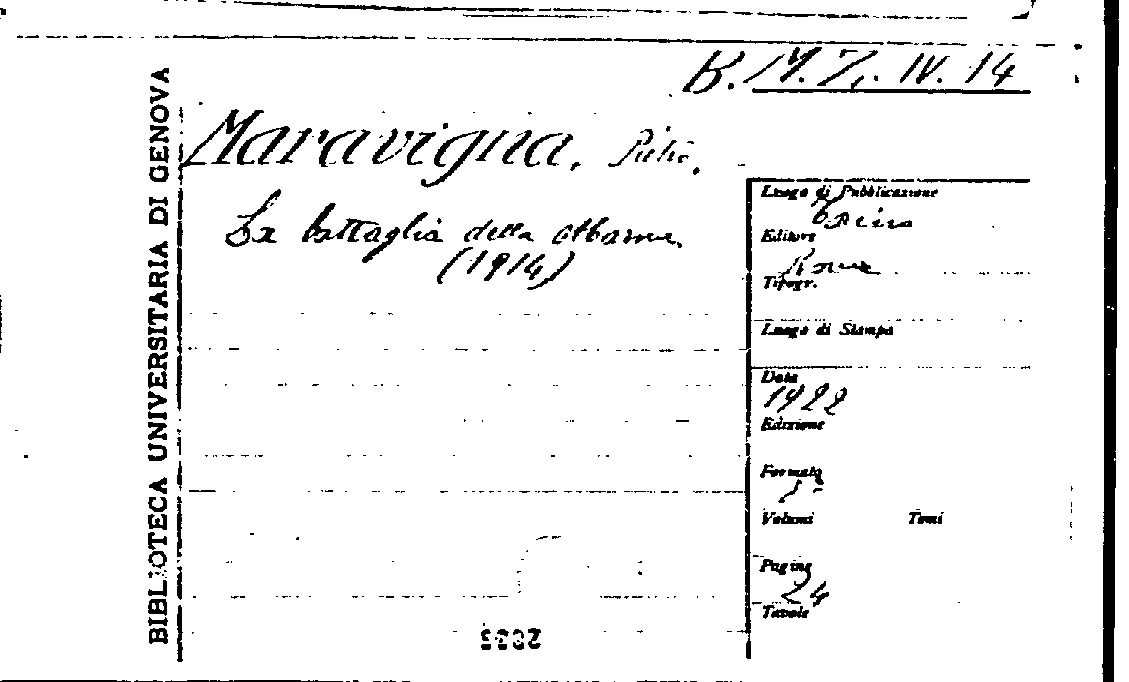 B. M. Z. IV. 14
BIBLIOTECA UNIVERSITARIA DI GENOVA
Maravigna, Pietro.
La battaglia della Marna.
(1914)
Luogo di Pubblicazione
Editore
Roma
Tipogr.
Luogo di Stampa
Data
1922
Edizione
Formato
Volumi Tomi
Pagine
24
Tavole
2835